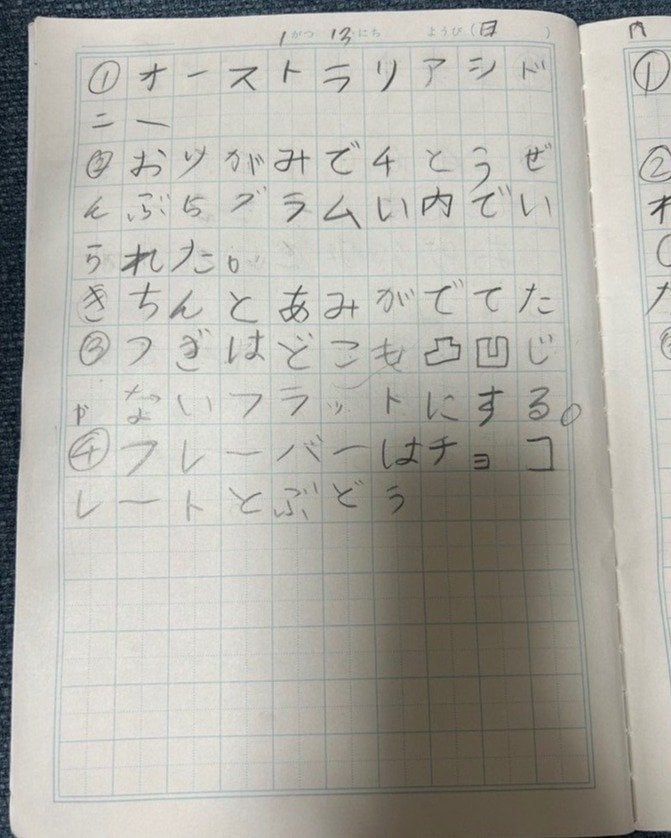 1がつ 13にち ようび(日)
①オーストラリアシド
ニー
②おりがみで4とうぜ
んぶ5グラムい内でい
られた。
きちんとあみがでてた
③つぎはどこも凸凹じ
ゃないフラットにする。
④フレーバーはチョコ
レートとぶどう
内
①
②
オ